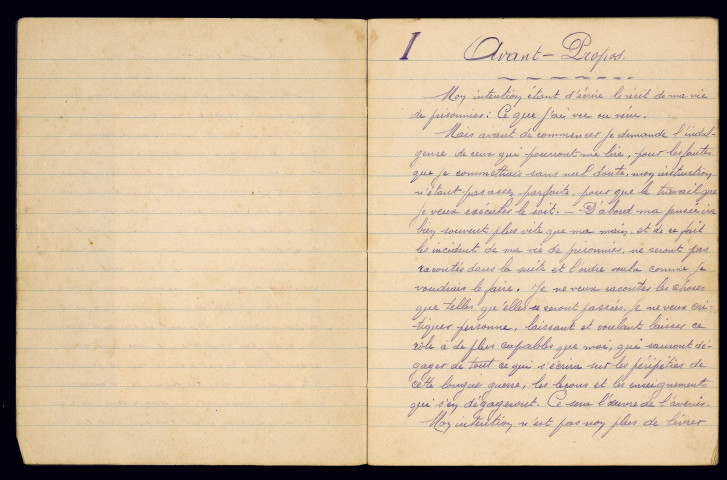 I Avant-Propos.
Mon intention étant d'écrire le récit de ma vie
de prisonnier: Ce que j'ai vu ou vécu.
Mais avant de commencer je demande l'indul-
gence de ceux qui pourront me lire, pour les fautes
que je commettrais sans nul doute, mon instruction
n'étant pas assez parfaite, pour que le travail que
je veux exécuter le soit. — D'abord ma pensée ira
bien souvent plus vite que ma main, et de ce fait
les incident de ma vie de prisonnier, ne seront pas
racontés dans la suite et l'ordre voulu comme je
voudrais le faire. Je ne veux raconter les choses
que telles qu'elles se seront passées, je ne veux cri-
tiquer personne, laissant et voulant laisser ce
rôle à de plus capables que moi, qui sauront dé-
gager de tout ce qui s'écrira sur les péripéties de
cette longue guerre, les leçons et les enseignements
qui s'en dégageront. Ce sera l'œuvre de l'avenir.
Mon intention n'est pas non plus de livrer